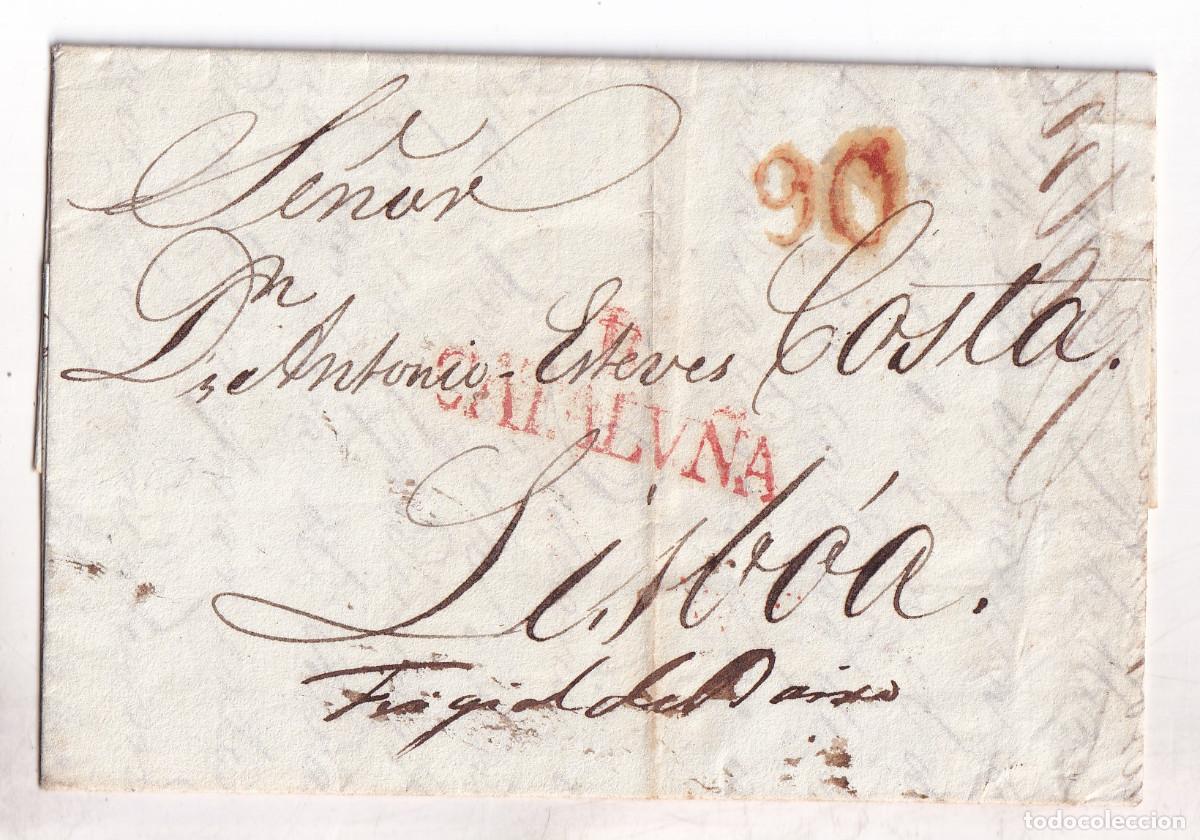 Señor
90
Dn Antonio Esteves Costa.
B
CATALVÑA
Lisbóa.
todocoleccion